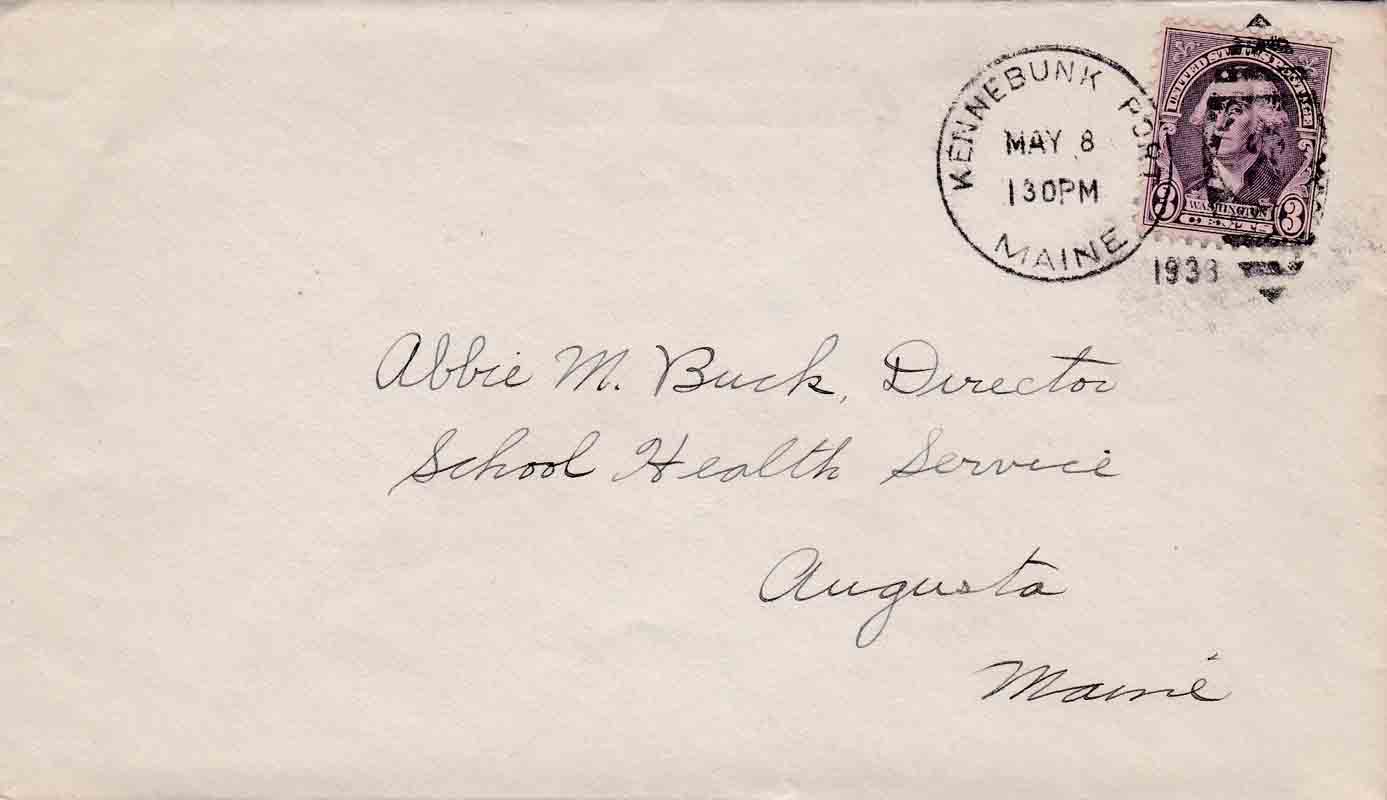 KENNEBUNK PORT
MAY 8
130PM
MAINE
UNITED STATES POSTAGE
3 WASHINGTON 3
CENTS
Abbie M. Buck, Director
School Health Service
Augusta
Maine